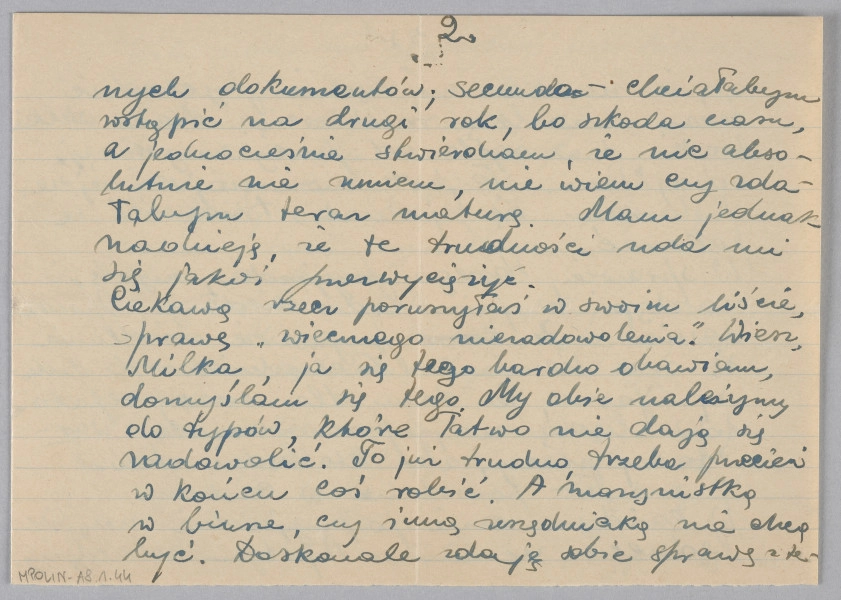 2.
nych dokumentów; secundo – chciałabym
wstąpić na drugi rok, bo szkoda czasu,
a jednocześnie stwierdzam, że nic abso-
lutnie nie umiem, nie wiem czy zda-
łabym teraz maturę. Mam jednak
nadzieję, że te trudności uda mi
się jakoś przezwyciężyć.
Ciekawą rzecz poruszyłaś w swoim liście,
sprawę „wiecznego niezadowolenia". Wiesz,
Milka, ja się tego bardzo obawiam,
domyślam się tego. My obie należymy
do typów, które łatwo nie dają się
zadowolić. To już trudno, trzeba przecież
w końcu coś robić. A maszynistką
w biurze, czy inną urzędniczką nie chcę
być. Doskonale zdaję sobie sprawę z te-
MPOLIN-A8.1.44